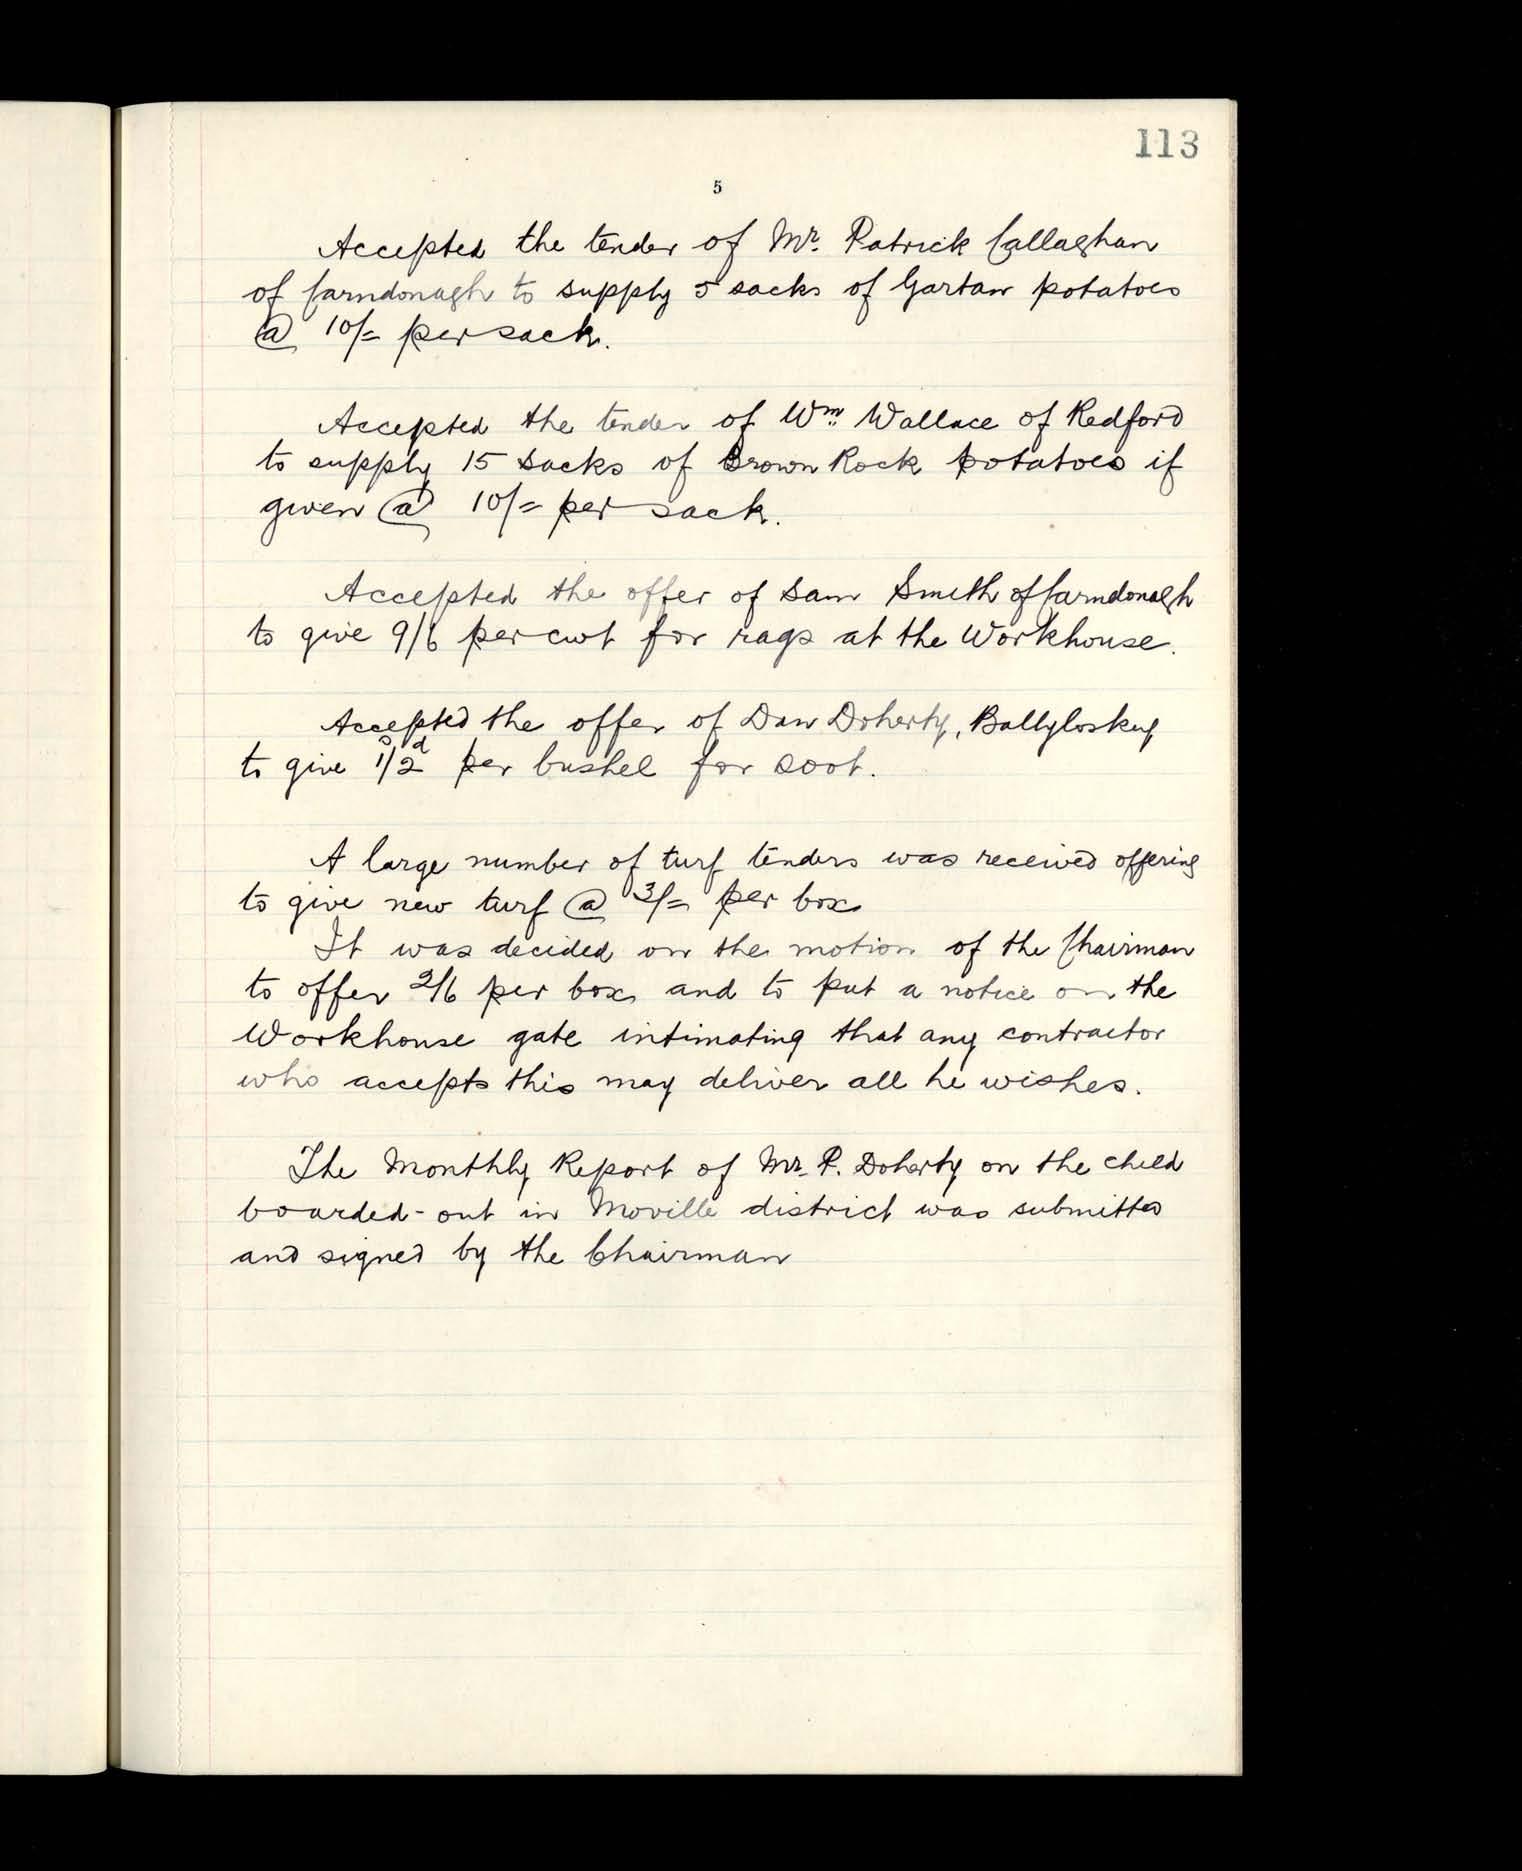 113
5
Accepted the tender of Mr. Patrick Callaghan
of Carndonagh to supply 5 sacks of Gartan potatoes
@ 10/= per sack.
Accepted the tender of Wm. Wallace of Redford
to supply 15 sacks of Brown Rock potatoes if
given @ 10/= per sack.
Accepted the offer of Sam Smith of Carndonagh
to give 9/6 per cwt for rags at the Workhouse.
Accepted the offer of Dan Doherty, Ballyloskey
to give 1s/2d per bushel for soot.
A large number of turf tenders was received offering
to give new turf @ 3/= per box
It was decided on the motion of the Chairman
to offer 2/6 per box and to put a notice on the
Workhouse gate intimating that any contractor
who accepts this may deliver all he wishes.
The Monthly Report of Mr. P. Doherty on the child
boarded-out in Moville district was submitted
and signed by the Chairman